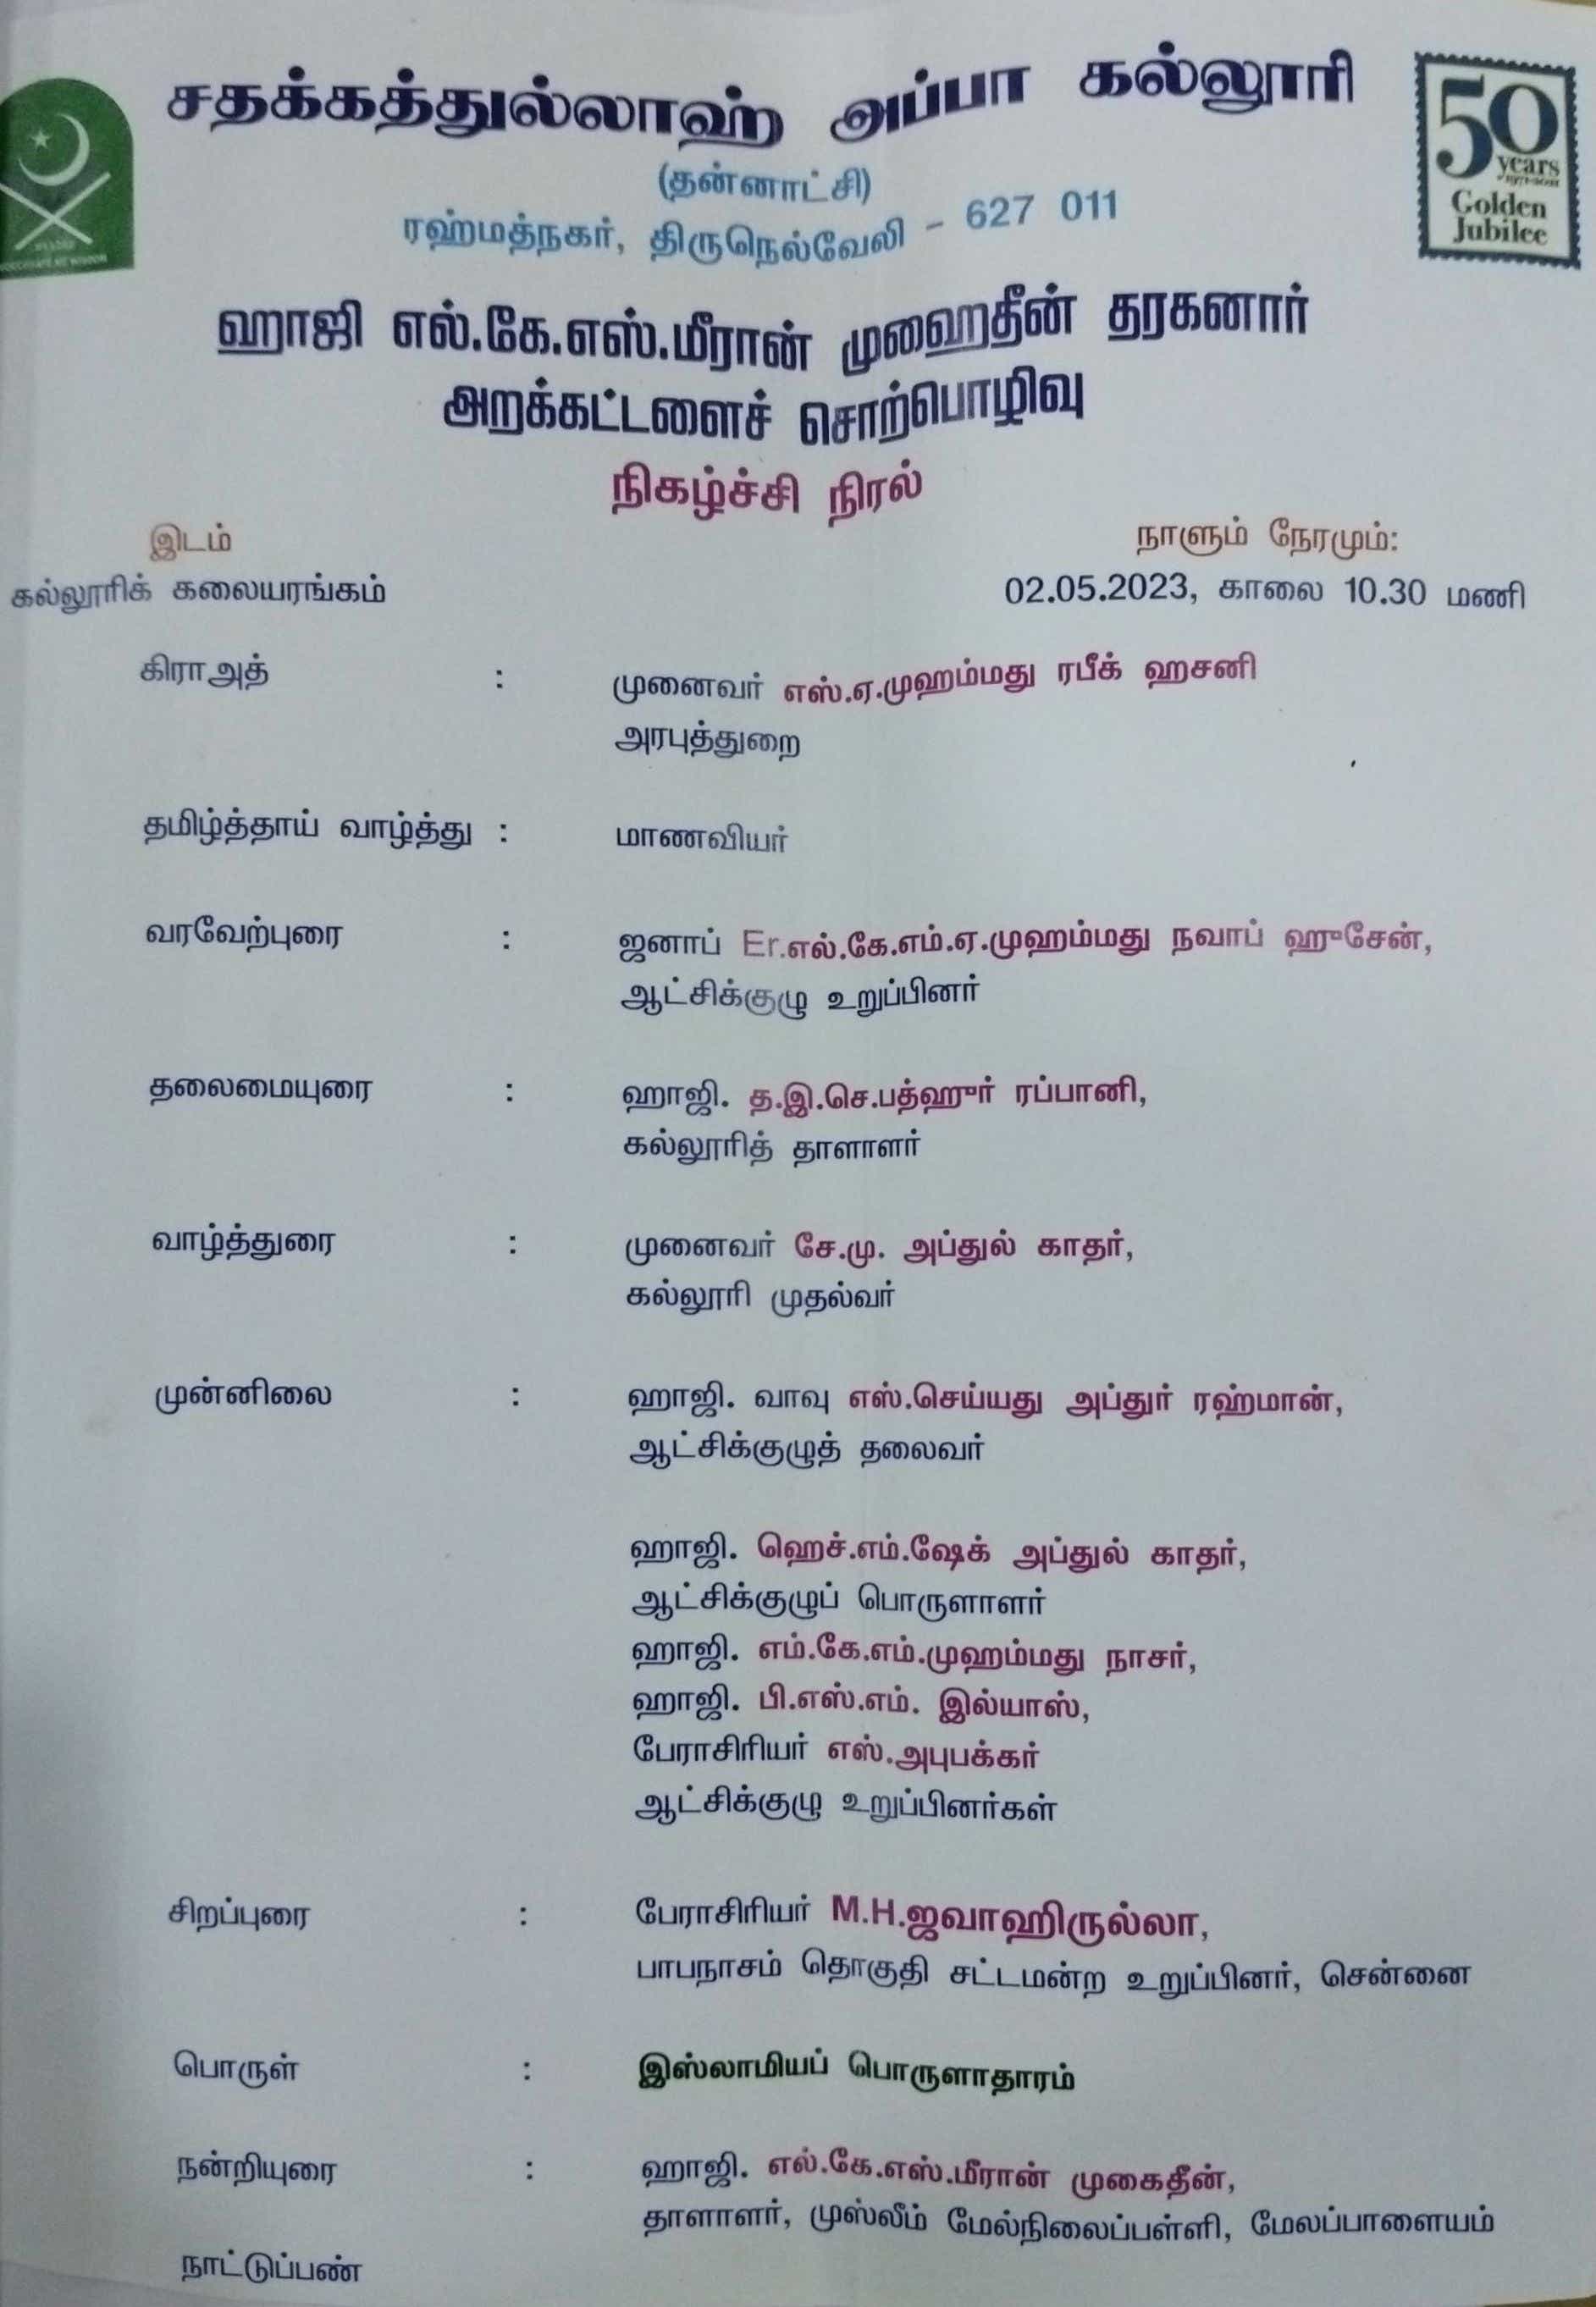 சதக்கத்துல்லாஹ் அப்பா கல்லூரி
50
years
Golden
Jubilee
(தன்னாட்சி)
ரஹ்மத்நகர், திருநெல்வேலி - 627 011
ஹாஜி எல்.கே.எஸ்.மீரான் முஹைதீன் தரகனார்
அறக்கட்டளைச் சொற்பொழிவு
நிகழ்ச்சி நிரல்
இடம்
நாளும் நேரமும்:
கல்லூரிக் கலையரங்கம்
02.05.2023, காலை 10.30 மணி
கிராஅத் : முனைவர் எஸ்.ஏ.முஹம்மது ரபீக் ஹசனி
அரபுத்துறை
தமிழ்த்தாய் வாழ்த்து : மாணவியர்
வரவேற்புரை : ஜனாப் Er.எல்.கே.எம்.ஏ.முஹம்மது நவாப் ஹுசேன்,
ஆட்சிக்குழு உறுப்பினர்
தலைமையுரை : ஹாஜி. த.இ.செ.பத்ஹுர் ரப்பானி,
கல்லூரித் தாளாளர்
வாழ்த்துரை : முனைவர் சே.மு. அப்துல் காதர்,
கல்லூரி முதல்வர்
முன்னிலை : ஹாஜி. வாவு எஸ்.செய்யது அப்துர் ரஹ்மான்,
ஆட்சிக்குழுத் தலைவர்
ஹாஜி. ஹெச்.எம்.ஷேக் அப்துல் காதர்,
ஆட்சிக்குழுப் பொருளாளர்
ஹாஜி. எம்.கே.எம்.முஹம்மது நாசர்,
ஹாஜி. பி.எஸ்.எம். இல்யாஸ்,
பேராசிரியர் எஸ்.அபுபக்கர்
ஆட்சிக்குழு உறுப்பினர்கள்
சிறப்புரை : பேராசிரியர் M.H.ஜவாஹிருல்லா,
பாபநாசம் தொகுதி சட்டமன்ற உறுப்பினர், சென்னை
பொருள் : இஸ்லாமியப் பொருளாதாரம்
நன்றியுரை : ஹாஜி. எல்.கே.எஸ்.மீரான் முகைதீன்,
தாளாளர், முஸ்லீம் மேல்நிலைப்பள்ளி, மேலப்பாளையம்
நாட்டுப்பண்